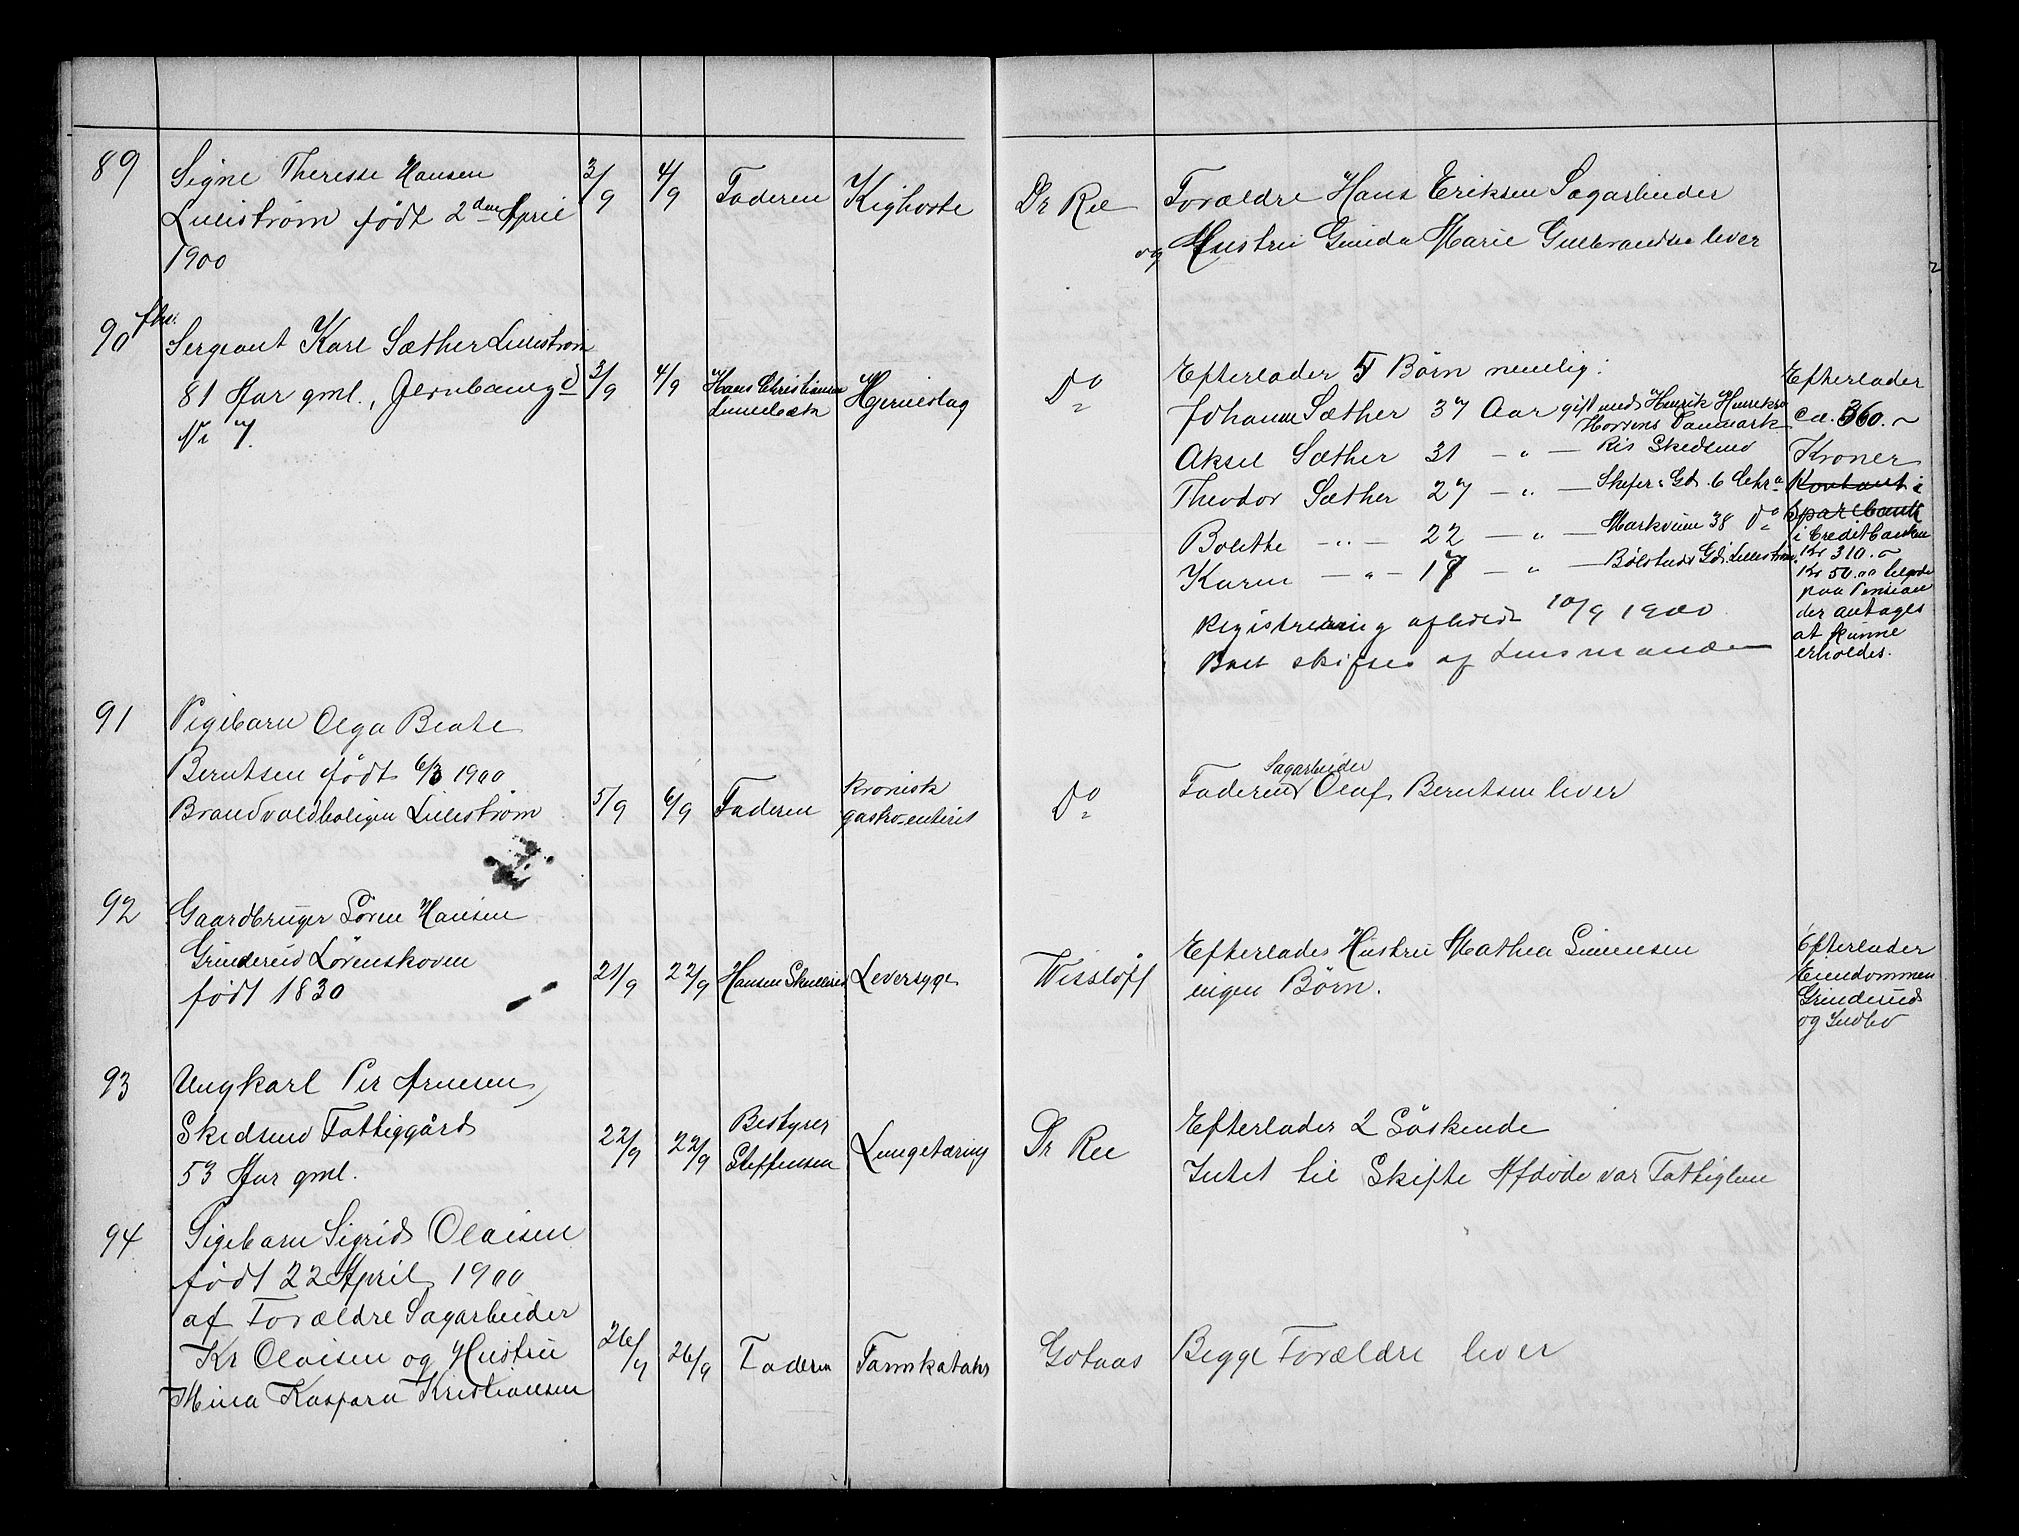 89
Signe Theresse Hansen
Lilleström födt 2den April
1900
3/9
4/9
Faderen
Kighoste
Dr Ree
Forældre Hans Eriksen Sagarbeider
og Hustru Gunda Marie Gulbrandsen lever
90
fhv.
Sergeant Karl Sæther Lilleström
81 Aar gml., Jernbanegd
Nr 7.
3/9
4/9
Hans Christiansen
Hjerneslag
Do
Efterlader 5 Børn nemlig:
Johanne Sæther 37 Aar gift med Henrik
Horsens Danmark
Aksel Sæther 31 - " - Ris Skedsmo
Theodor Sæther 27 - " - Gd. 6 Chra
Bolette - " - 22 - " - Markveien 38 Do
Karen - " - 17 - " - Lilleström
Registrering afholdt 10/9 1900
Boet skiftes af Lensmanden
Efterlader
ca. 360.-
Kroner
Kontant i
Sparebank
i Creditbanken
Kr 310.-
Kr 50.00 tilgode
paa Pension
der antages
at kunne
erholdes.
91
Pigebarn Olga Beate
Berntsen födt 6/3 1900
Brandvoldboligen Lilleström
5/9
6/9
Faderen
Kronisk
gastro-enterit
Do
Sagarbeider
Faderen Olaf Berntsen lever
92
Gaardbruger Sören Hansen
Grinderud Lörenskoven
födt 1830
21/9
22/9
Hansen Skullerud
Leversyge
Wisslöff
Efterlades Hustru Mathea Simensen
ingen Børn.
Efterlader
Eiendommen
Grinderud
og Indbo
93
Ungkarl Per Arnesen,
Skedsmo Fattiggård
53 Aar gml.
22/9
22/9
Bestyrer
Steffensen
Lungetæring
Dr Ree
Efterlader 2 Söskende
Intet til Skifte Afdöde var Fattiglem
94
Pigebarn Sigrid Olaisen
födt 22 April 1900
af Forældre Sagarbeider
Kr Olaisen og Hustru
Mina Kaspara Kristiansen
26/9
26/9
Faderen
Tarmkatahr
Gotaas
Begge Forældre lever